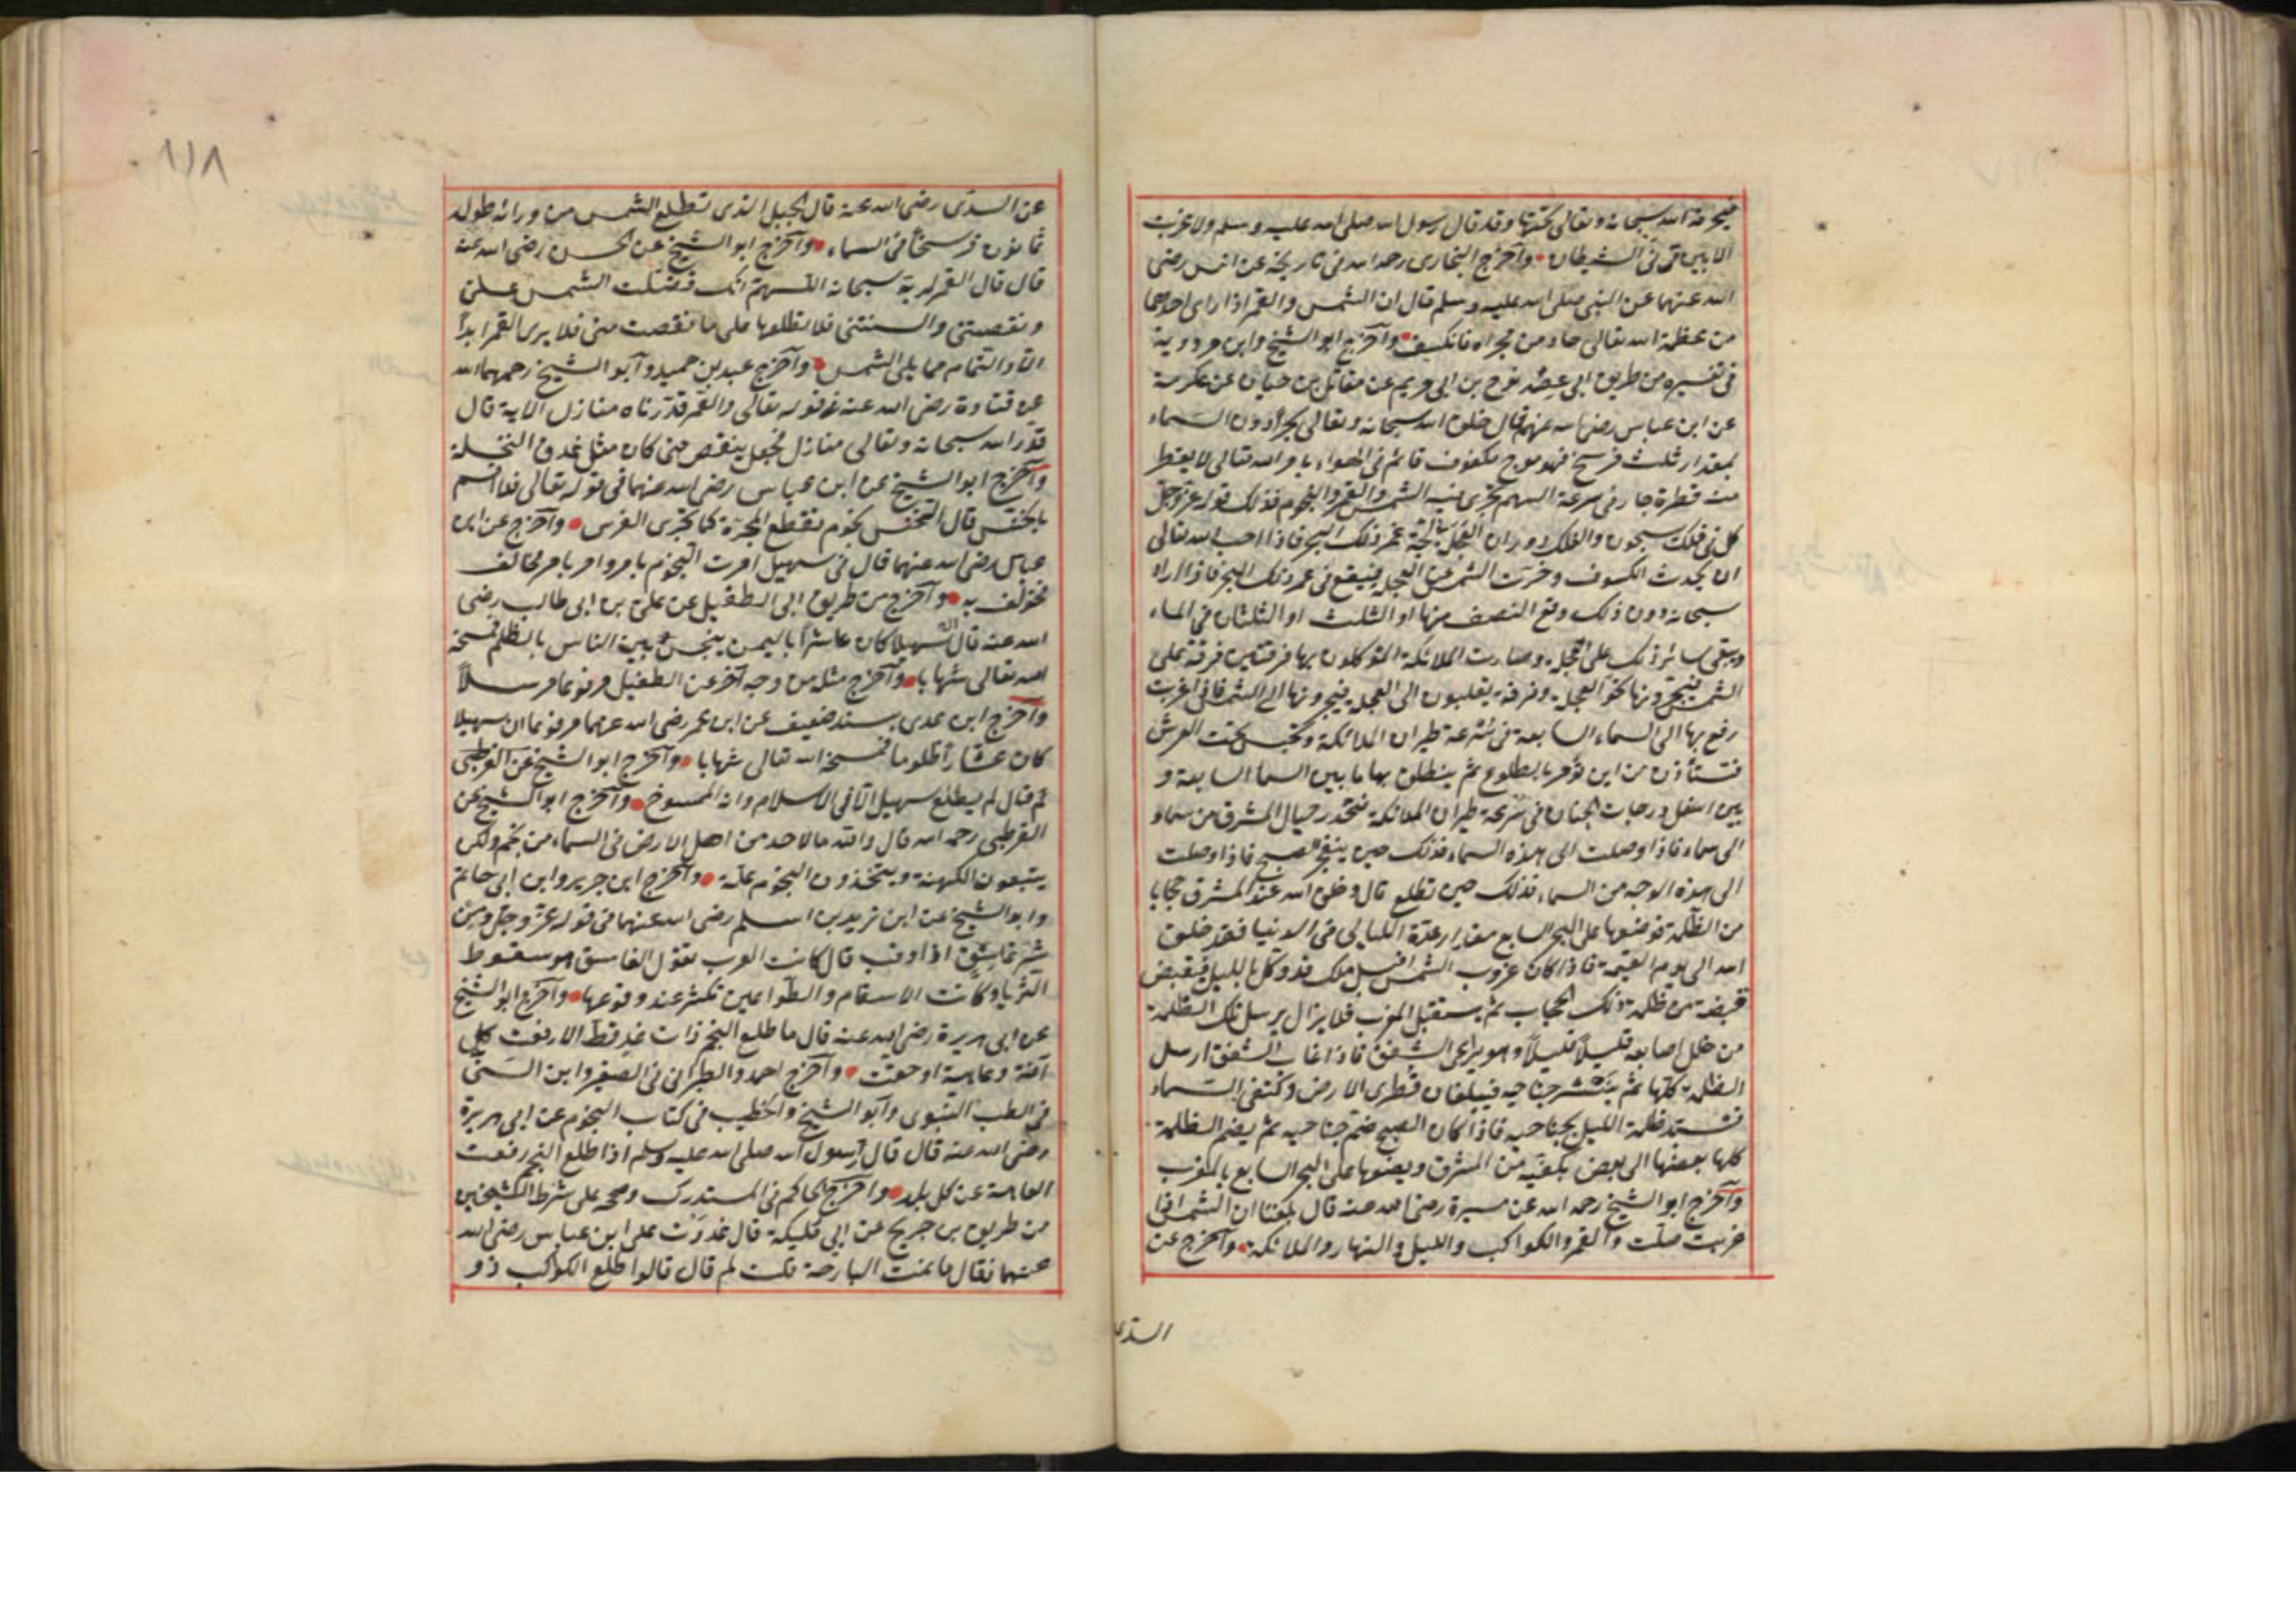 فيحرقه الله سبحانه وتعالى تحتها وقد قال رسول الله صلى الله عليه وسلم ولا غربت
الا بين قرني الشيطان وآخرج البخارى رحمه الله فى تاريخه عن انس رضى
الله عنهما عن النبى صلى الله عليه وسلم قال ان الشمس والقمر اذا راى احدهما
من عظمة الله تعالى حاد من مجراه فانكسف وآخرج ابو الشيخ وابن مردوية
فى تفسيره من طريق ابى عصمة نوح بن ابى مريم عن مقاتل بن حيان عن عكرمة
عن ابن عباس رضى الله عنهم قال خلق الله سبحانه وتعالى بحرا دون السماء
بمقدار ثلث فرسخ فهو موج مكفوف قائم فى الهواء بامر الله تعالى لا يقطر
منه قطرة جار فى سرعة السهم تجرى فيه الشمس والقمر والنجوم فذلك قوله عز وجل
كل فى فلك يسبحون والفلك دوران العجلة فى لجة غمر ذلك البحر فاذا احب الله تعالى
ان يحدث الكسوف وخرت الشمس عن العجلة فيقع فى غمر ذلك البحر فاذا اراد
سبحانه دون ذلك وقع النصف منها او الثلث او الثلثان فى الماء
ويبقى سائر ذلك على العجلة وصارت الملائكة الموكلون بها فرقتين فرقة على
الشمس فيجرونها نحو العجلة وفرقة يقلبون الى العجلة فيجرونها الى الشمس فاذا غربت
رفع بها الى السماء السابعة فى سرعة طيران الملائكة وتحبس تحت العرش
فتستأذن من اين تؤمر بالطلوع ثم ينطلق بها ما بين السما السابعة و
بين اسفل درجات الجنان فى سرعة طيران الملائكة فتنحدر حيال المشرق من سماء
الى سماء فاذا وصلت الى هذه السماء فذلك حين ينفجر الصبح فاذا وصلت
الى هذه الوجه من السماء فذلك حين تطلع قال وخلق الله عند المشرق حجابا
من الظلمة فوضعها على البحر السابع مقدار عدة الليالى فى الدنيا منذ خلق
الله الى يوم القيمة فاذا كان غروب الشمس اقبل ملك قد وكل بالليل فيقبض
قبضة من ظلمة ذلك الحجاب ثم يستقبل المغرب فلا يزال يرسل تلك الظلمة
من خلل اصابعه قليلاً قليلاً وهو يراعى الشفق فاذا غاب الشفق ارسل
الظلمة كلها ثم ينشر جناحيه فيبلغان قطرى الارض وكنفى السماء
فتستد ظلمة الليل بجناحيه فاذا كان الصبح ضم جناحيه ثم يضم الظلمة
كلها بعضها الى بعض بكفيه من المشرق ويضعها على البحر السابع بالمغرب
وآخرج ابو الشيخ رحمه الله عن ميسرة رضى الله عنه قال بلغنا ان الشمس اذا
غربت صلت والقمر والكواكب والليل والنهار والملائكة وآخرج عن
السدى
١١٨
عن السدى رضى الله عنه قال الجبل الذى تطلع الشمس من ورائه طوله
ثمانون فرسخاً فى السماء وآخرج ابو الشيخ عن الحسن رضى الله عنه
قال قال القمر لربه سبحانه اللهم انك فضلت الشمس على
ونقصتنى والسنتنى فلا تطلعها على ما نقصت منى فلا يرى القمر ابداً
الا والتمام مما يلى الشمس وآخرج عبد بن حميد وآبو الشيخ رحمهما الله
عن قتادة رضى الله عنه فى قوله تعالى والقمر قدرناه منازل الاية قال
قدر الله سبحانه وتعالى منازل فجعل ينقص حتى كان مثل غدق النخلة
وآخرج ابو الشيخ عن ابن عباس رضى الله عنهما فى قوله تعالى فلا اقسم
بالخنس قال الخنس نجوم تقطع المجرة كما تجرى الفرس وآخرج عن ابن
عباس رضى الله عنهما قال فى سهيل امرت النجوم بامر وامر بامر مخالف
فخولف به وآخرج من طريق ابى الطفيل عن على بن ابى طالب رضى
الله عنه قال ان سهيلا كان عاشراً باليمن يبخس بين الناس بالظلم فمسخه
الله تعالى شهابا وآخرج مثله من وجه آخر عن الطفيل مرفوعا مرسلاً
وآخرج ابن عدى بسند ضعيف عن ابن عمر رضى الله عنهما مرفوعا ان سهيلا
كان عشاراً ظلوما فمسخه الله تعالى شهابا وآخرج ابو الشيخ عن القرظى
ثم قال لم يطلع سهيل الا فى الاسلام وانه الممسوخ وآخرج ابو الشيخ عن
القرظى رحمه الله قال والله ما لاحد من اهل الارض فى السماء من نجم ولكن
يتبعون الكهنة ويتخذون النجوم علة وآخرج ابن جرير وابن ابى حاتم
وابو الشيخ عن ابن زيد بن اسلم رضى الله عنهما فى قوله عز وجل ومن
شر غاسق اذا وقب قال كانت العرب تقول الغاسق هو سقوط
الثريا وكانت الاسقام والطواعين تكثر عند وقوعها وآخرج ابو الشيخ
عن ابى هريرة رضى الله عنه قال ما طلع النجم ذات غد قط الا رفعت كل
آفة وعاهة او خفت وآخرج احمد والطبرانى فى الصغير وابن السنى
فى الطب النبوى وآبو الشيخ والخطيب فى كتاب النجوم عن ابى هريرة
رضى الله عنه قال قال رسول الله صلى الله عليه وسلم اذا طلع النجم رفعت
العاهة عن كل بلد وآخرج الحاكم فى المستدرك وصححه على شرط الشيخين
من طريق بن جريج عن ابى مليكة قال غدوت على ابن عباس رضى الله
عنهما فقال ما نمت البارحة قلت لم قال قالوا طلع الكوكب ذو